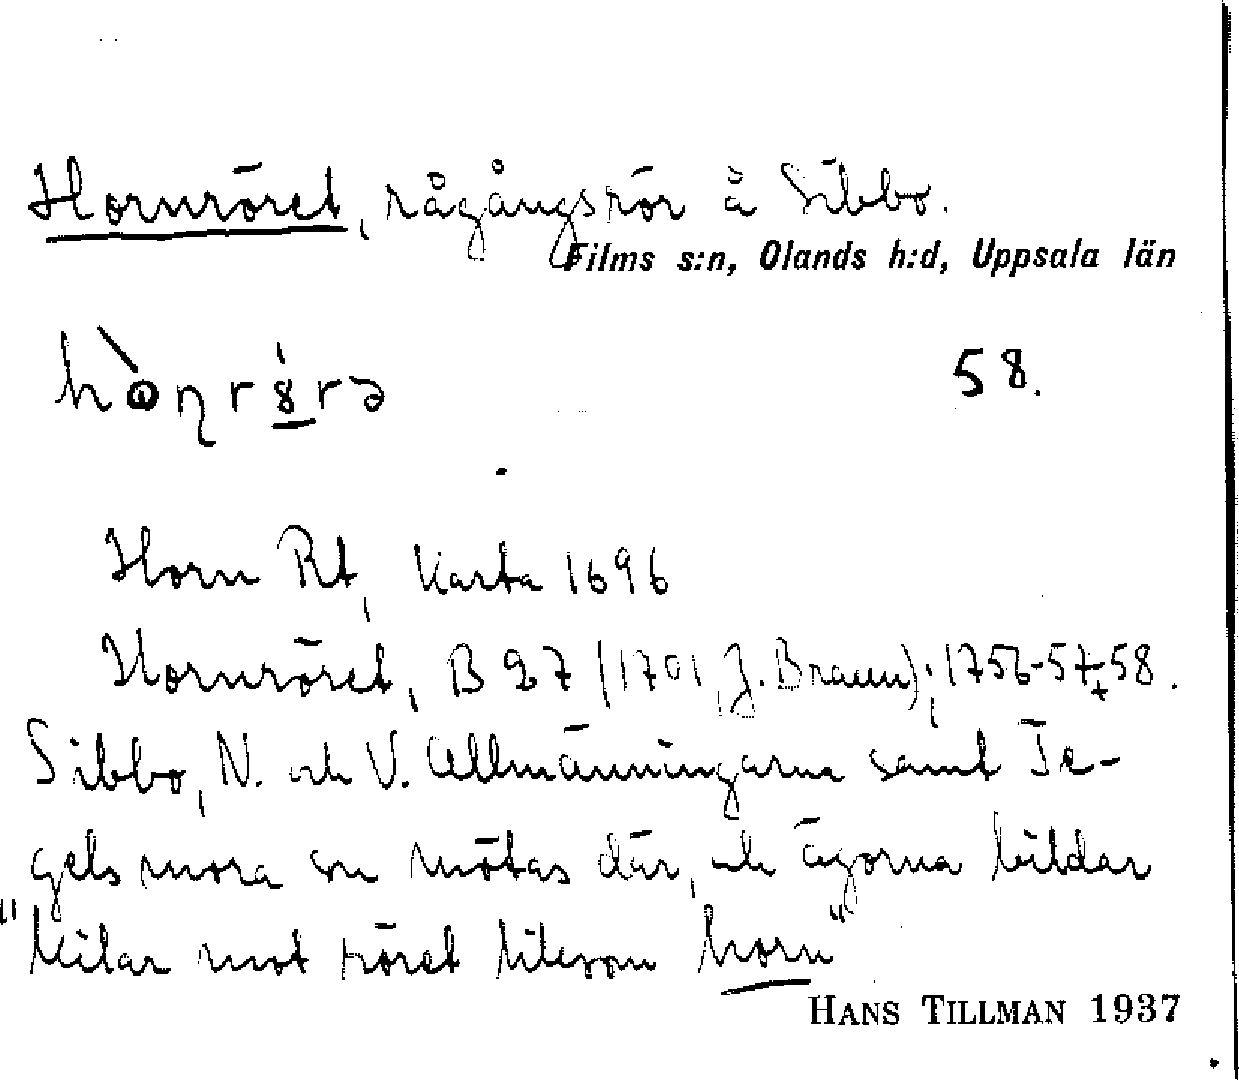 Hornröret, rågångsrör å Sibbo.
Films s:n, Olands h:d, Uppsala län
58.
Horn Rt, Karta 1696
Hornröret, B 27 (1701, J. Braun); 1756-57+58.
Sibbo, N. och V. Allmänningarna samt Te-
gelsmora sn mötas där, och ägorna bildar
"kilar mot röret liksom horn"
HANS TILLMAN 1937